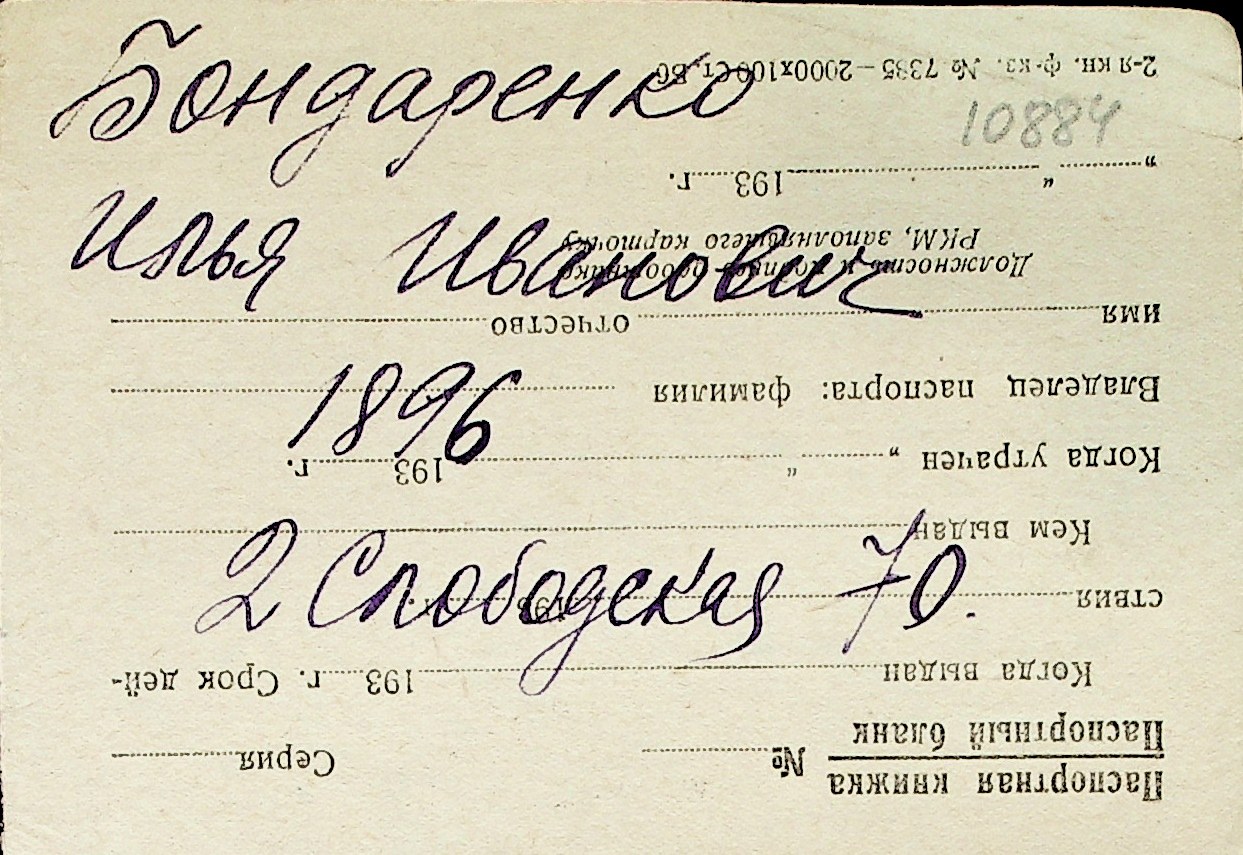 Бондаренко
Илья Иванович
1896
2 Слободская 70.
10884
Паспортная книжка
Паспортный бланк
№ Серия
Когда выдан 193 г. Срок дей-
ствия 193 г.
Кем выдан
Когда утрачен „ “ 193 г.
Владелец паспорта: фамилия
имя отчество
Должность и подпись работника
РКМ, заполнявшего карточку
„ “ 193 г.
2-я кн. ф-ка. № 7335—2000х100 Ст. Б6